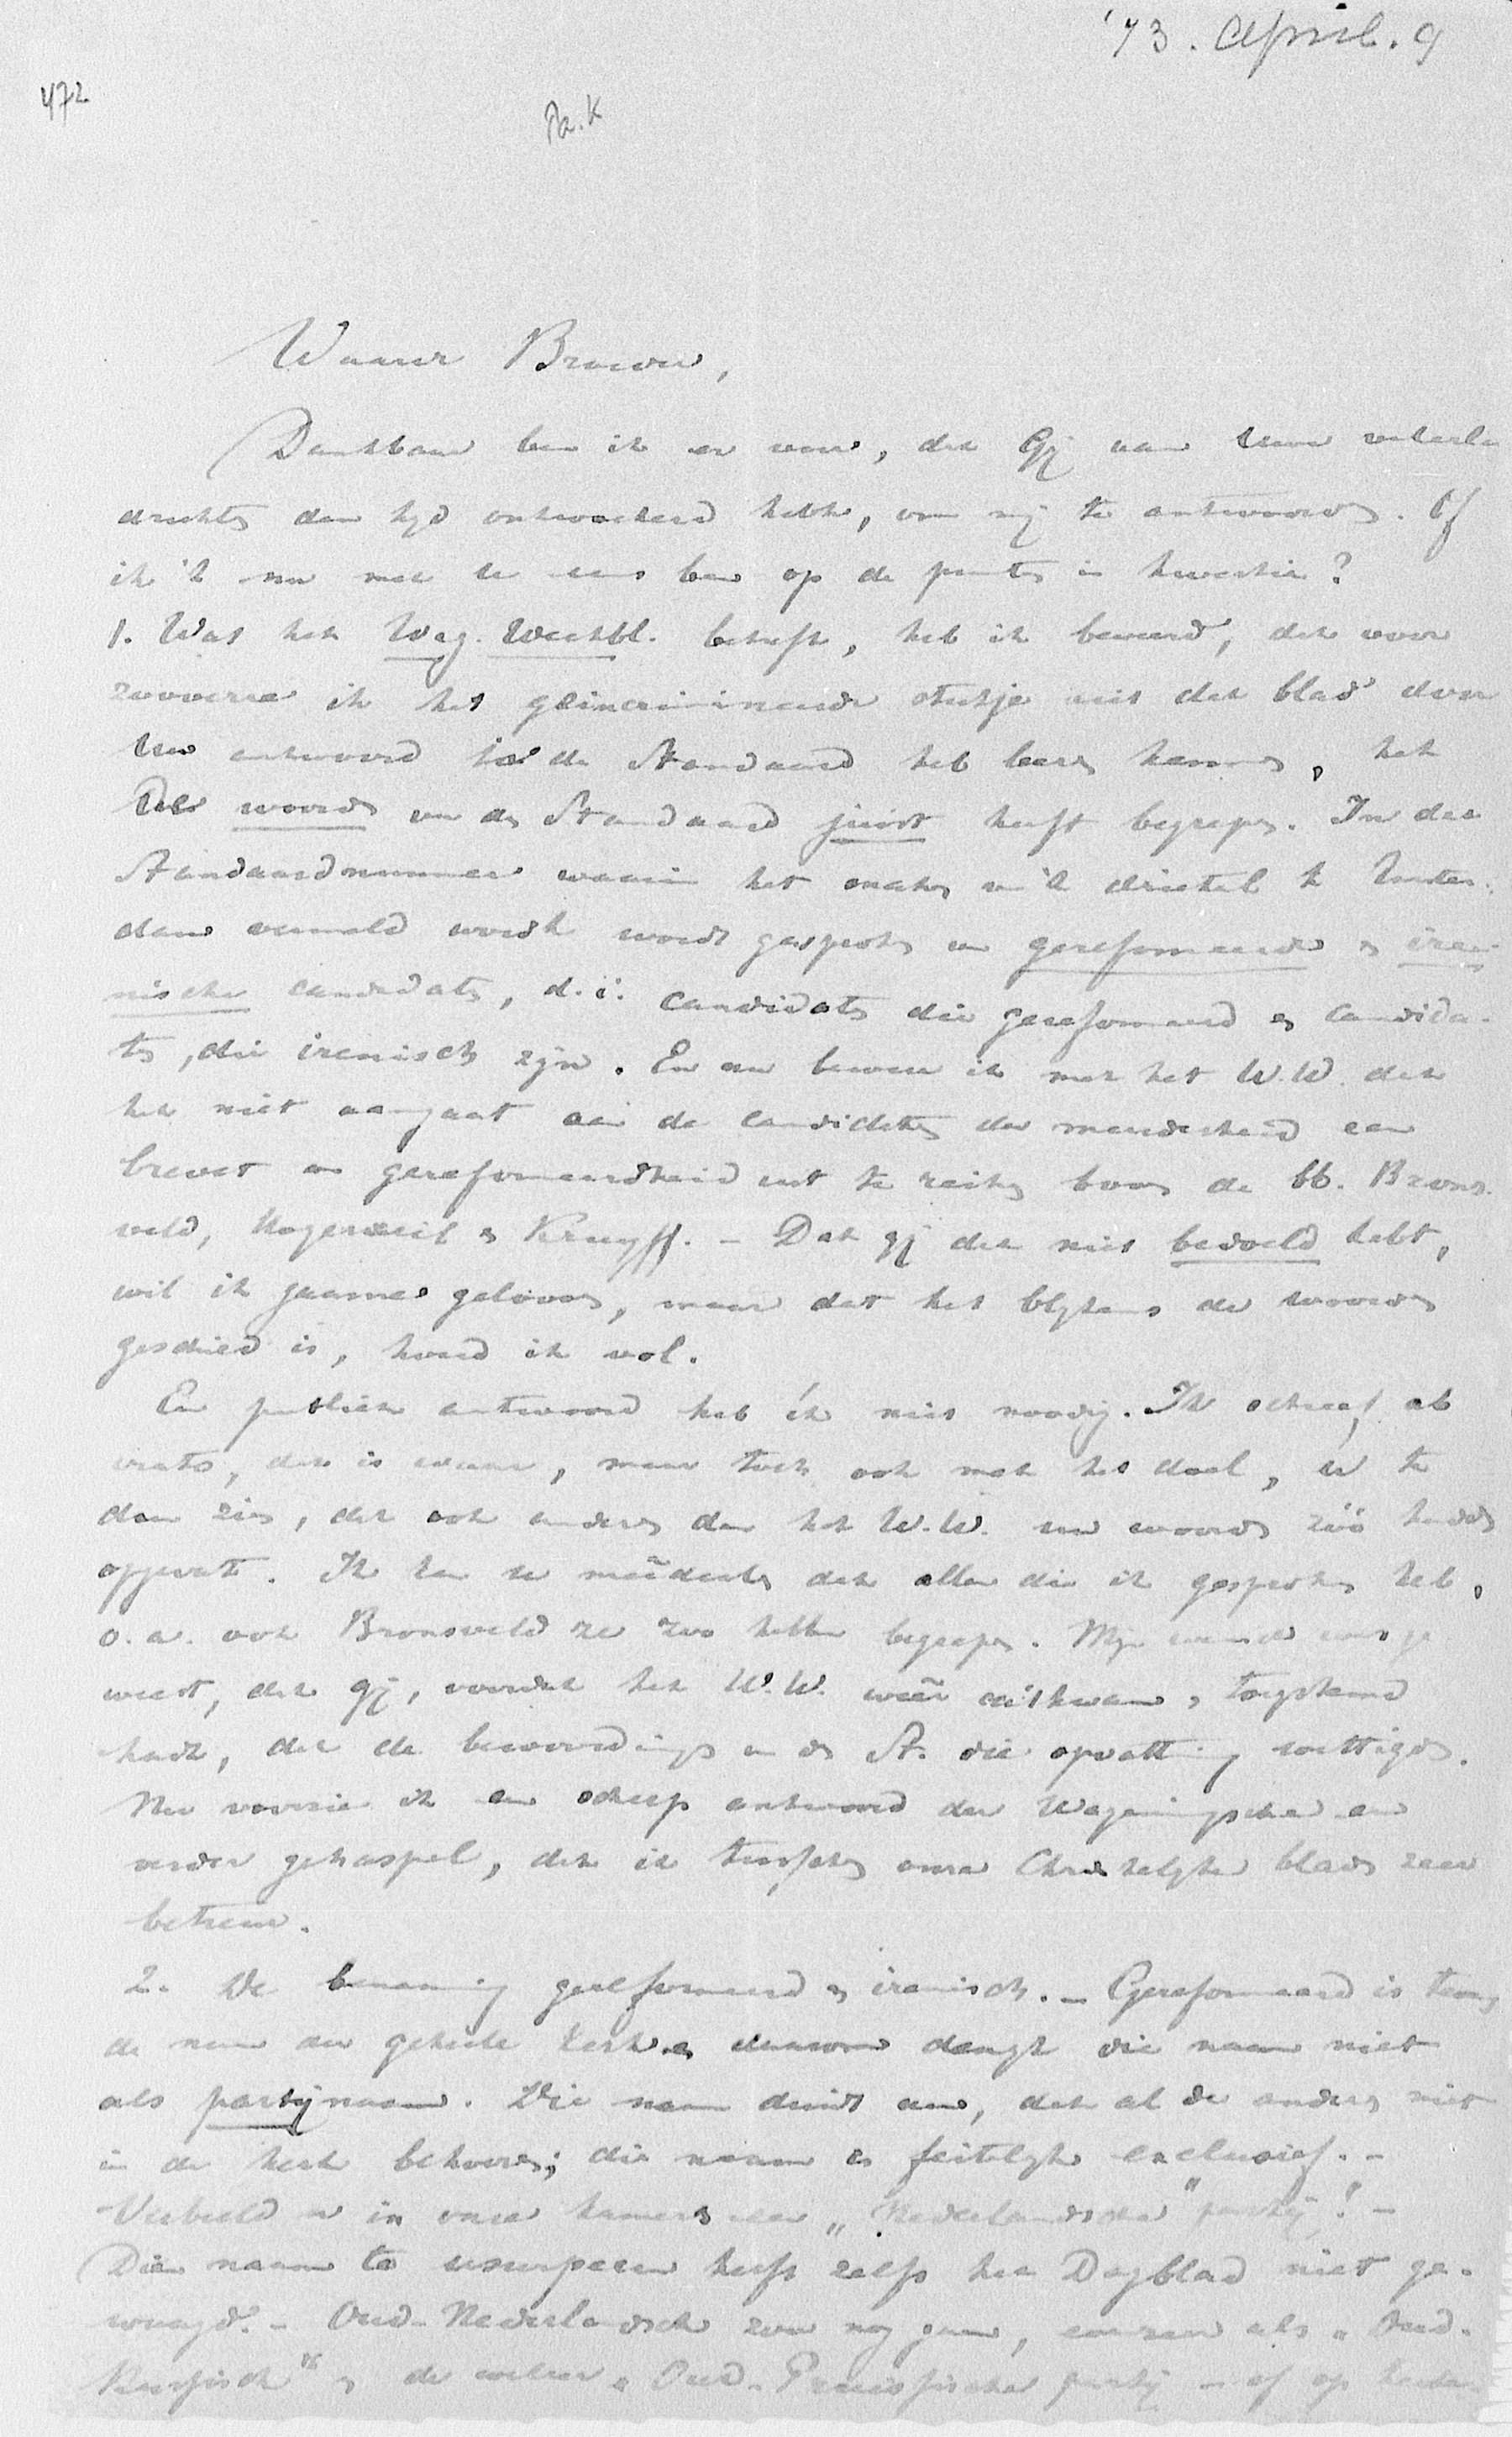 '73. April. 9
472
Waarde Broeder,
Dankbaar ben ik er voor, dat Gij aan Uwe
den tijd ontwoekerd hebt, om mij te antwoorden. Of
ik 't nu met U eens ben op de punten in kwestie?
1. Wat het Wag. Weekbl. betreft, heb ik beweerd, dat voor
zooverre ik het geïncrimineerde stukje uit dat blad door
Uw antwoord in de Standaard heb leeren kennen, het
de woorden van de Standaard juist heeft begrepen. In dat
Standaardnummer waarin het maken van 't drietal te
vermeld wordt wordt gesproken van gereformeerde en ire-
nische candidaten, d.i. candidaten die gereformeerd en candida-
ten, die irenisch zijn. En nu beweer ik met het W.W. dat
het niet aangaat aan de candidaten der meerderheid een
brevet van gereformeerdheid uit te reiken boven de bb. Brons-
veld, Hogerzeil en Kruyff. - Dat gij dat niet bedoeld hebt,
wil ik gaarne gelooven, maar dat het blijkens de woorden
geschied is, houd ik vol.
Een publiek antwoord heb ík niet noodig. Ik schreef ab
irato, dat is waar, maar toch ook met het doel, U te
doen zien, dat ook anderen dan het W.W. uw woorden zóó hadden
opgevat. Ik kan U meêdeelen dat allen die ik gesproken heb,
o.a. ook Bronsveld ze zoo hebben begrepen. Mijn wensch ware ge
weest, dat gij, voordat het W.W. weêr uitkwam, toegestemd
hadt, dat de bewoordingen van de St. die opvatting wettigden.
Nu voorzie ik een scherp antwoord der Wageningsche en
verder gehaspel, dat ik tusschen onze Christelijke bladen zeer
betreur.
2. De benaming gereformeerd en irenisch. - Gereformeerd is
de naam der geheele kerk en daarom deugt die naam niet
als partijnaam. Die naam duidt aan, dat al de anderen niet
in de kerk behooren; die naam is feitelijk exclusief. -
Verbeeld u in onze kamers een „Nederlandsche" partij! -
Dien naam te usurpeeren heeft zelfs het Dagblad niet ge-
waagd. - Oud-Nederlandsch zou nog gaan, evenzeer als „Oud-
" en de „Oud-Pruissische partij - of op